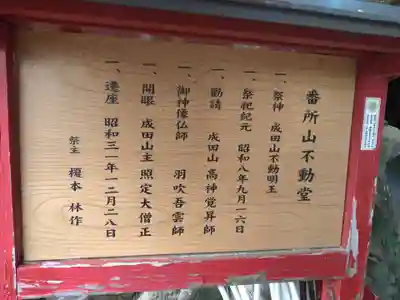 番所山不動堂
一、祭神 成田山不動明王
一、祭祀紀元 昭和八年九月一六日
一、勧請 成田山 高神覚昇師
一、御神像仏師 羽吹吾雲師
一、開眼 成田山主 照定大僧正
一、遷座 昭和三一年一二月二八日
祭主 榎本林作